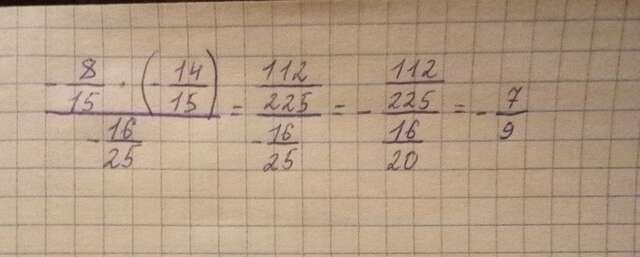 -8/15 · (-14/15) / -16/25 = 112/225 / -16/25 = - 112/225 / 16/20 = - 7/9